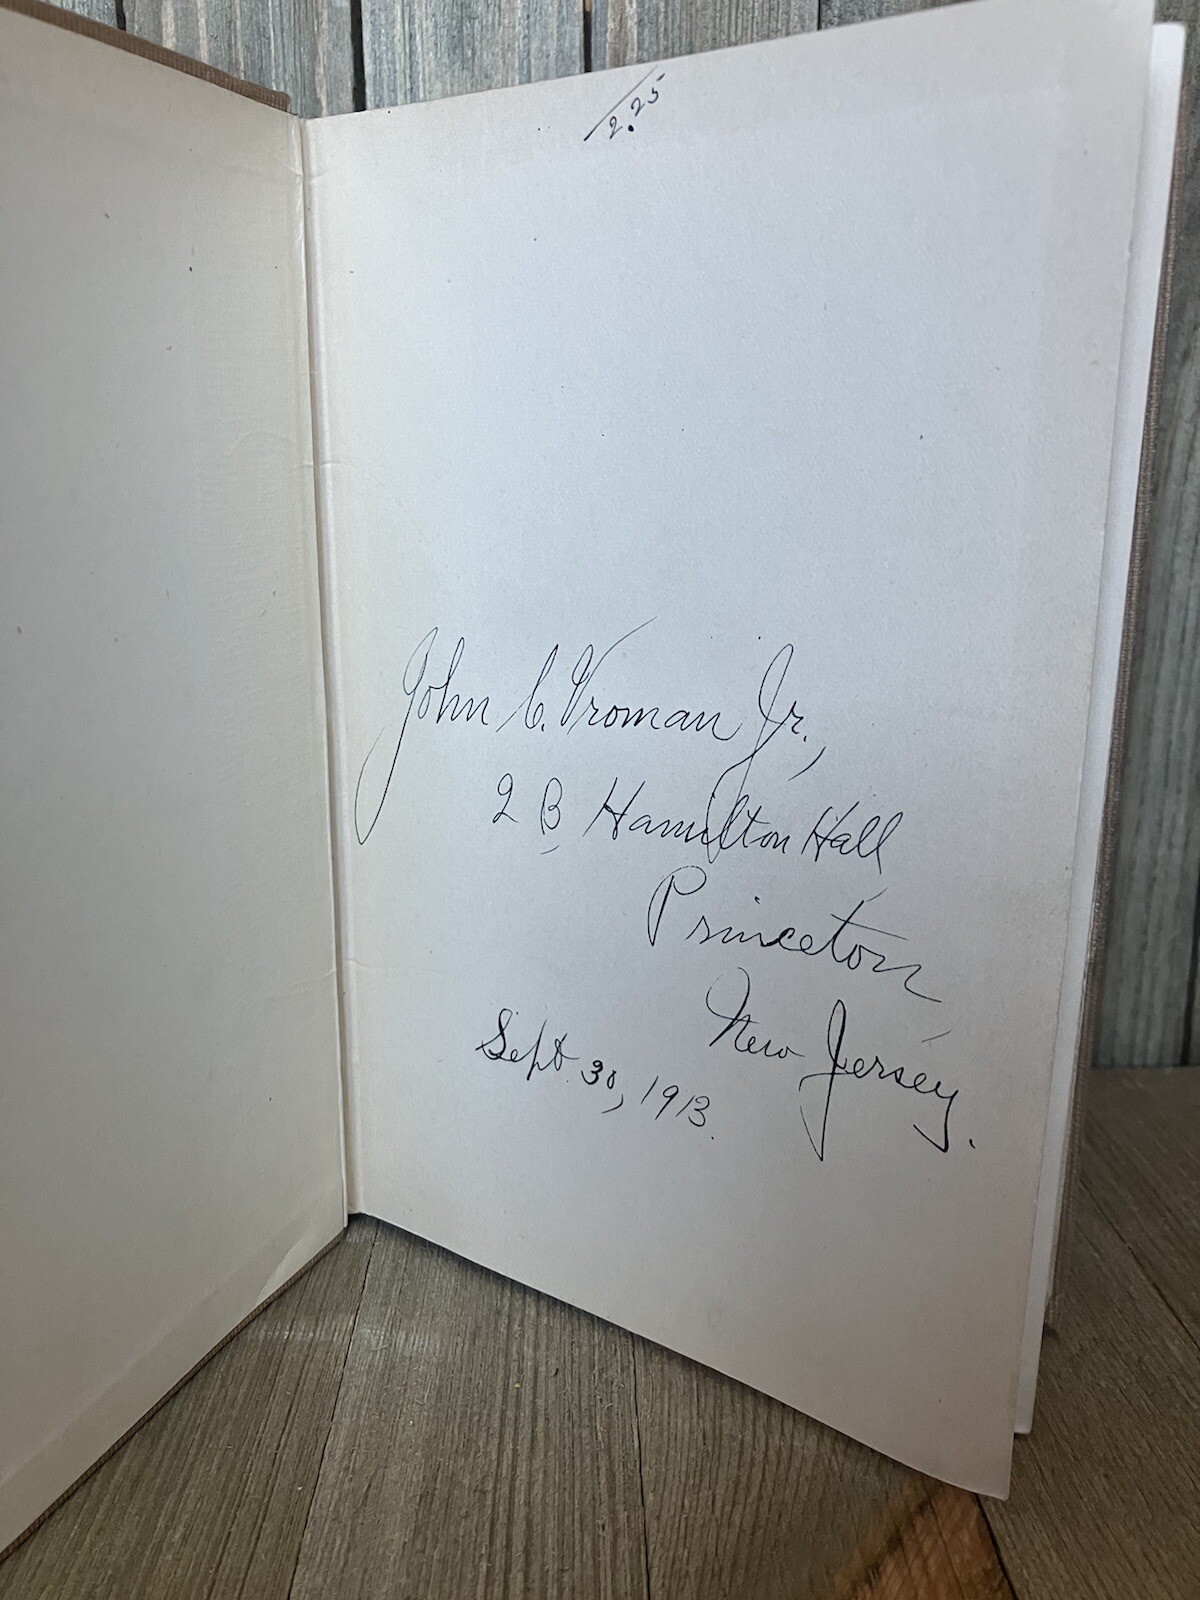 2.25
John C. Vroman Jr.,
2 B Hamilton Hall
Princeton,
New Jersey.
Sept. 30, 1913.